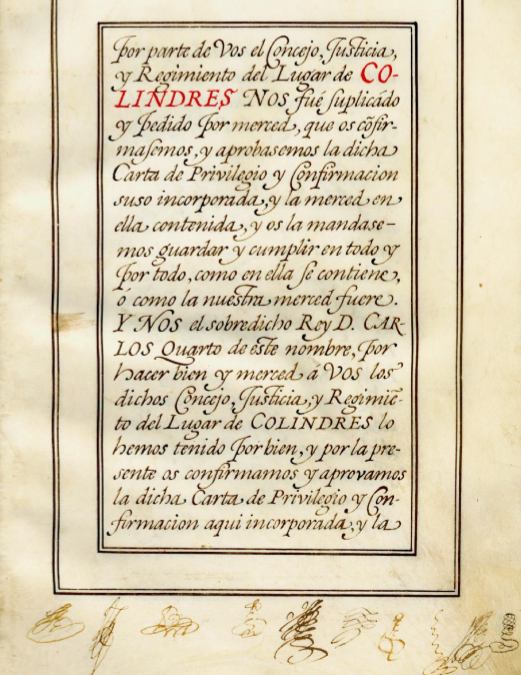 por parte de Vos el Concejo, Justicia,
y Regimiento del Lugar de CO-
LINDRES NOS fué suplicado
y pedido por merced, que os cõfir-
masemos, y aprobasemos la dicha
Carta de Privilegio y Confirmacion
suso incorporada, y la merced en
ella contenida, y os la mandase-
mos guardar y cumplir en todo y
por todo, como en ella se contiene,
ó como la nuestra merced fuere.
Y NOS el sobredicho Rey D. CAR-
LOS Quarto de este nombre, por
hacer bien y merced á VOS los
dichos Concejo, Justicia, y Regimiẽ-
to del Lugar de COLINDRES lo
hemos tenido por bien, y por la pre-
sente os confirmamos y aprovamos
la dicha Carta de Privilegio y Con-
firmacion aqui incorporada, y la